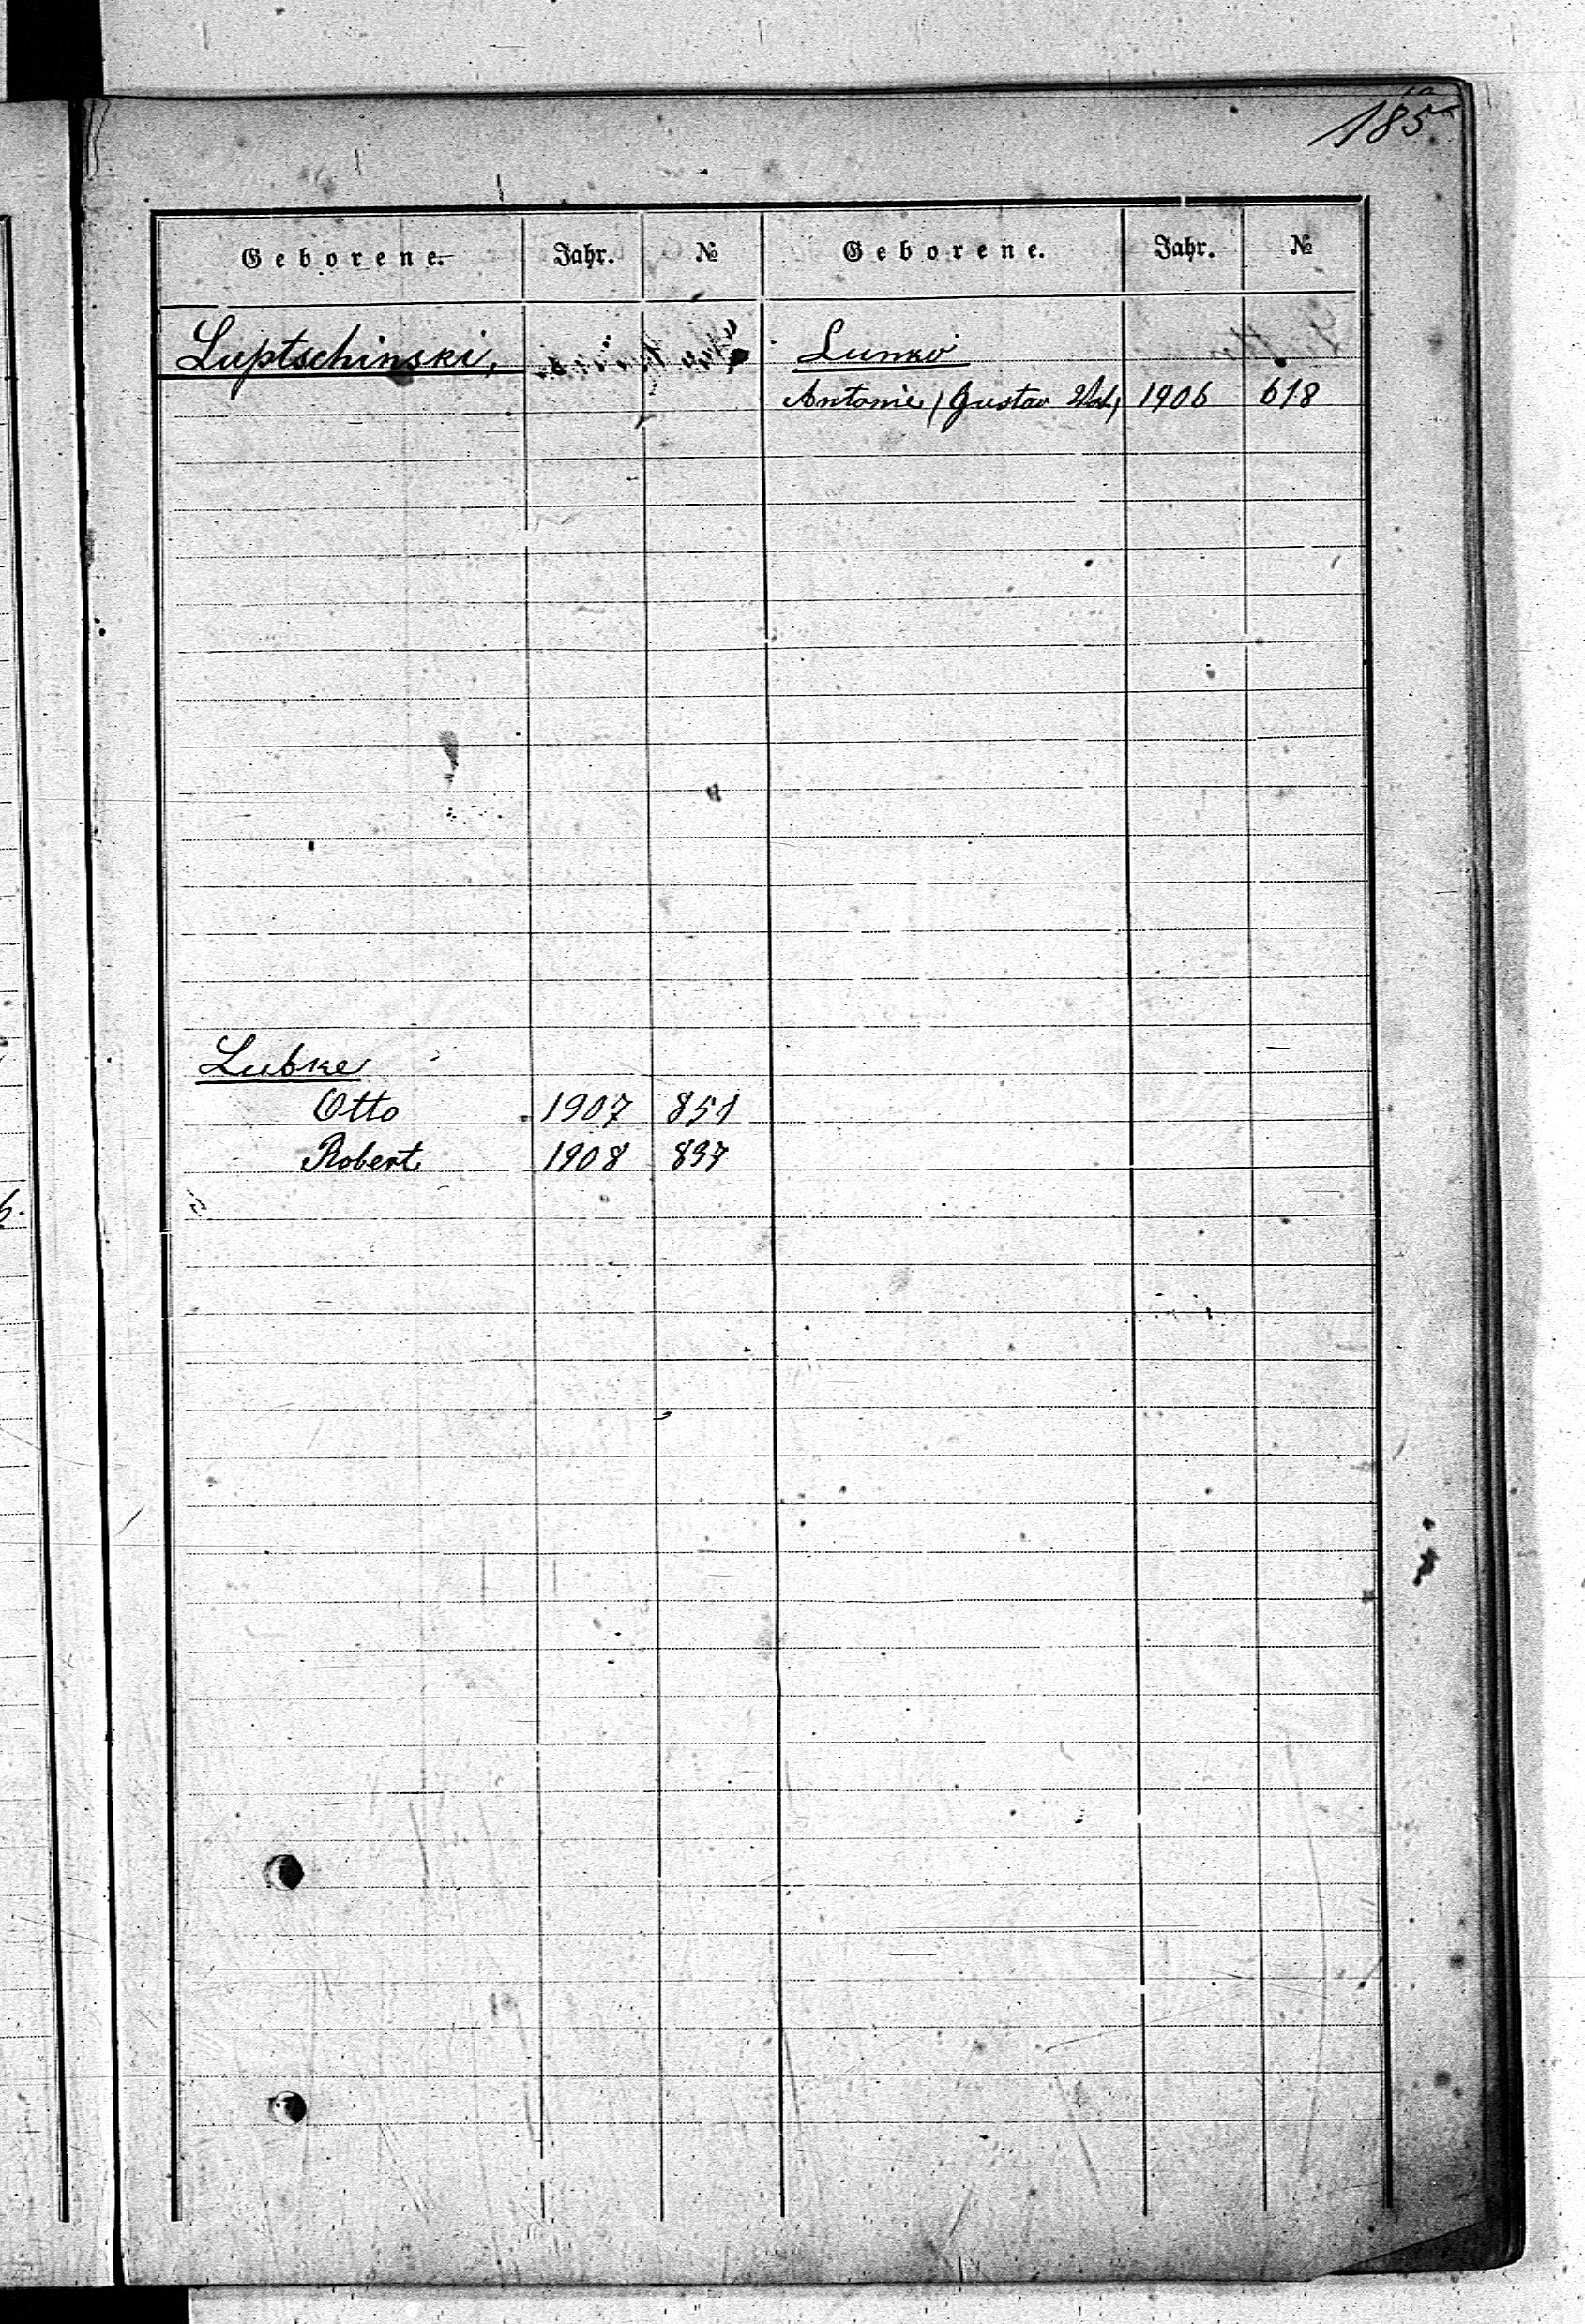 185
Geborene. Jahr. № Geborene. Jahr. №
Luptschinski,
Lubke
Otto 1907 851
Robert 1908 897
Lunko
Antonie (Gustav 1906 618